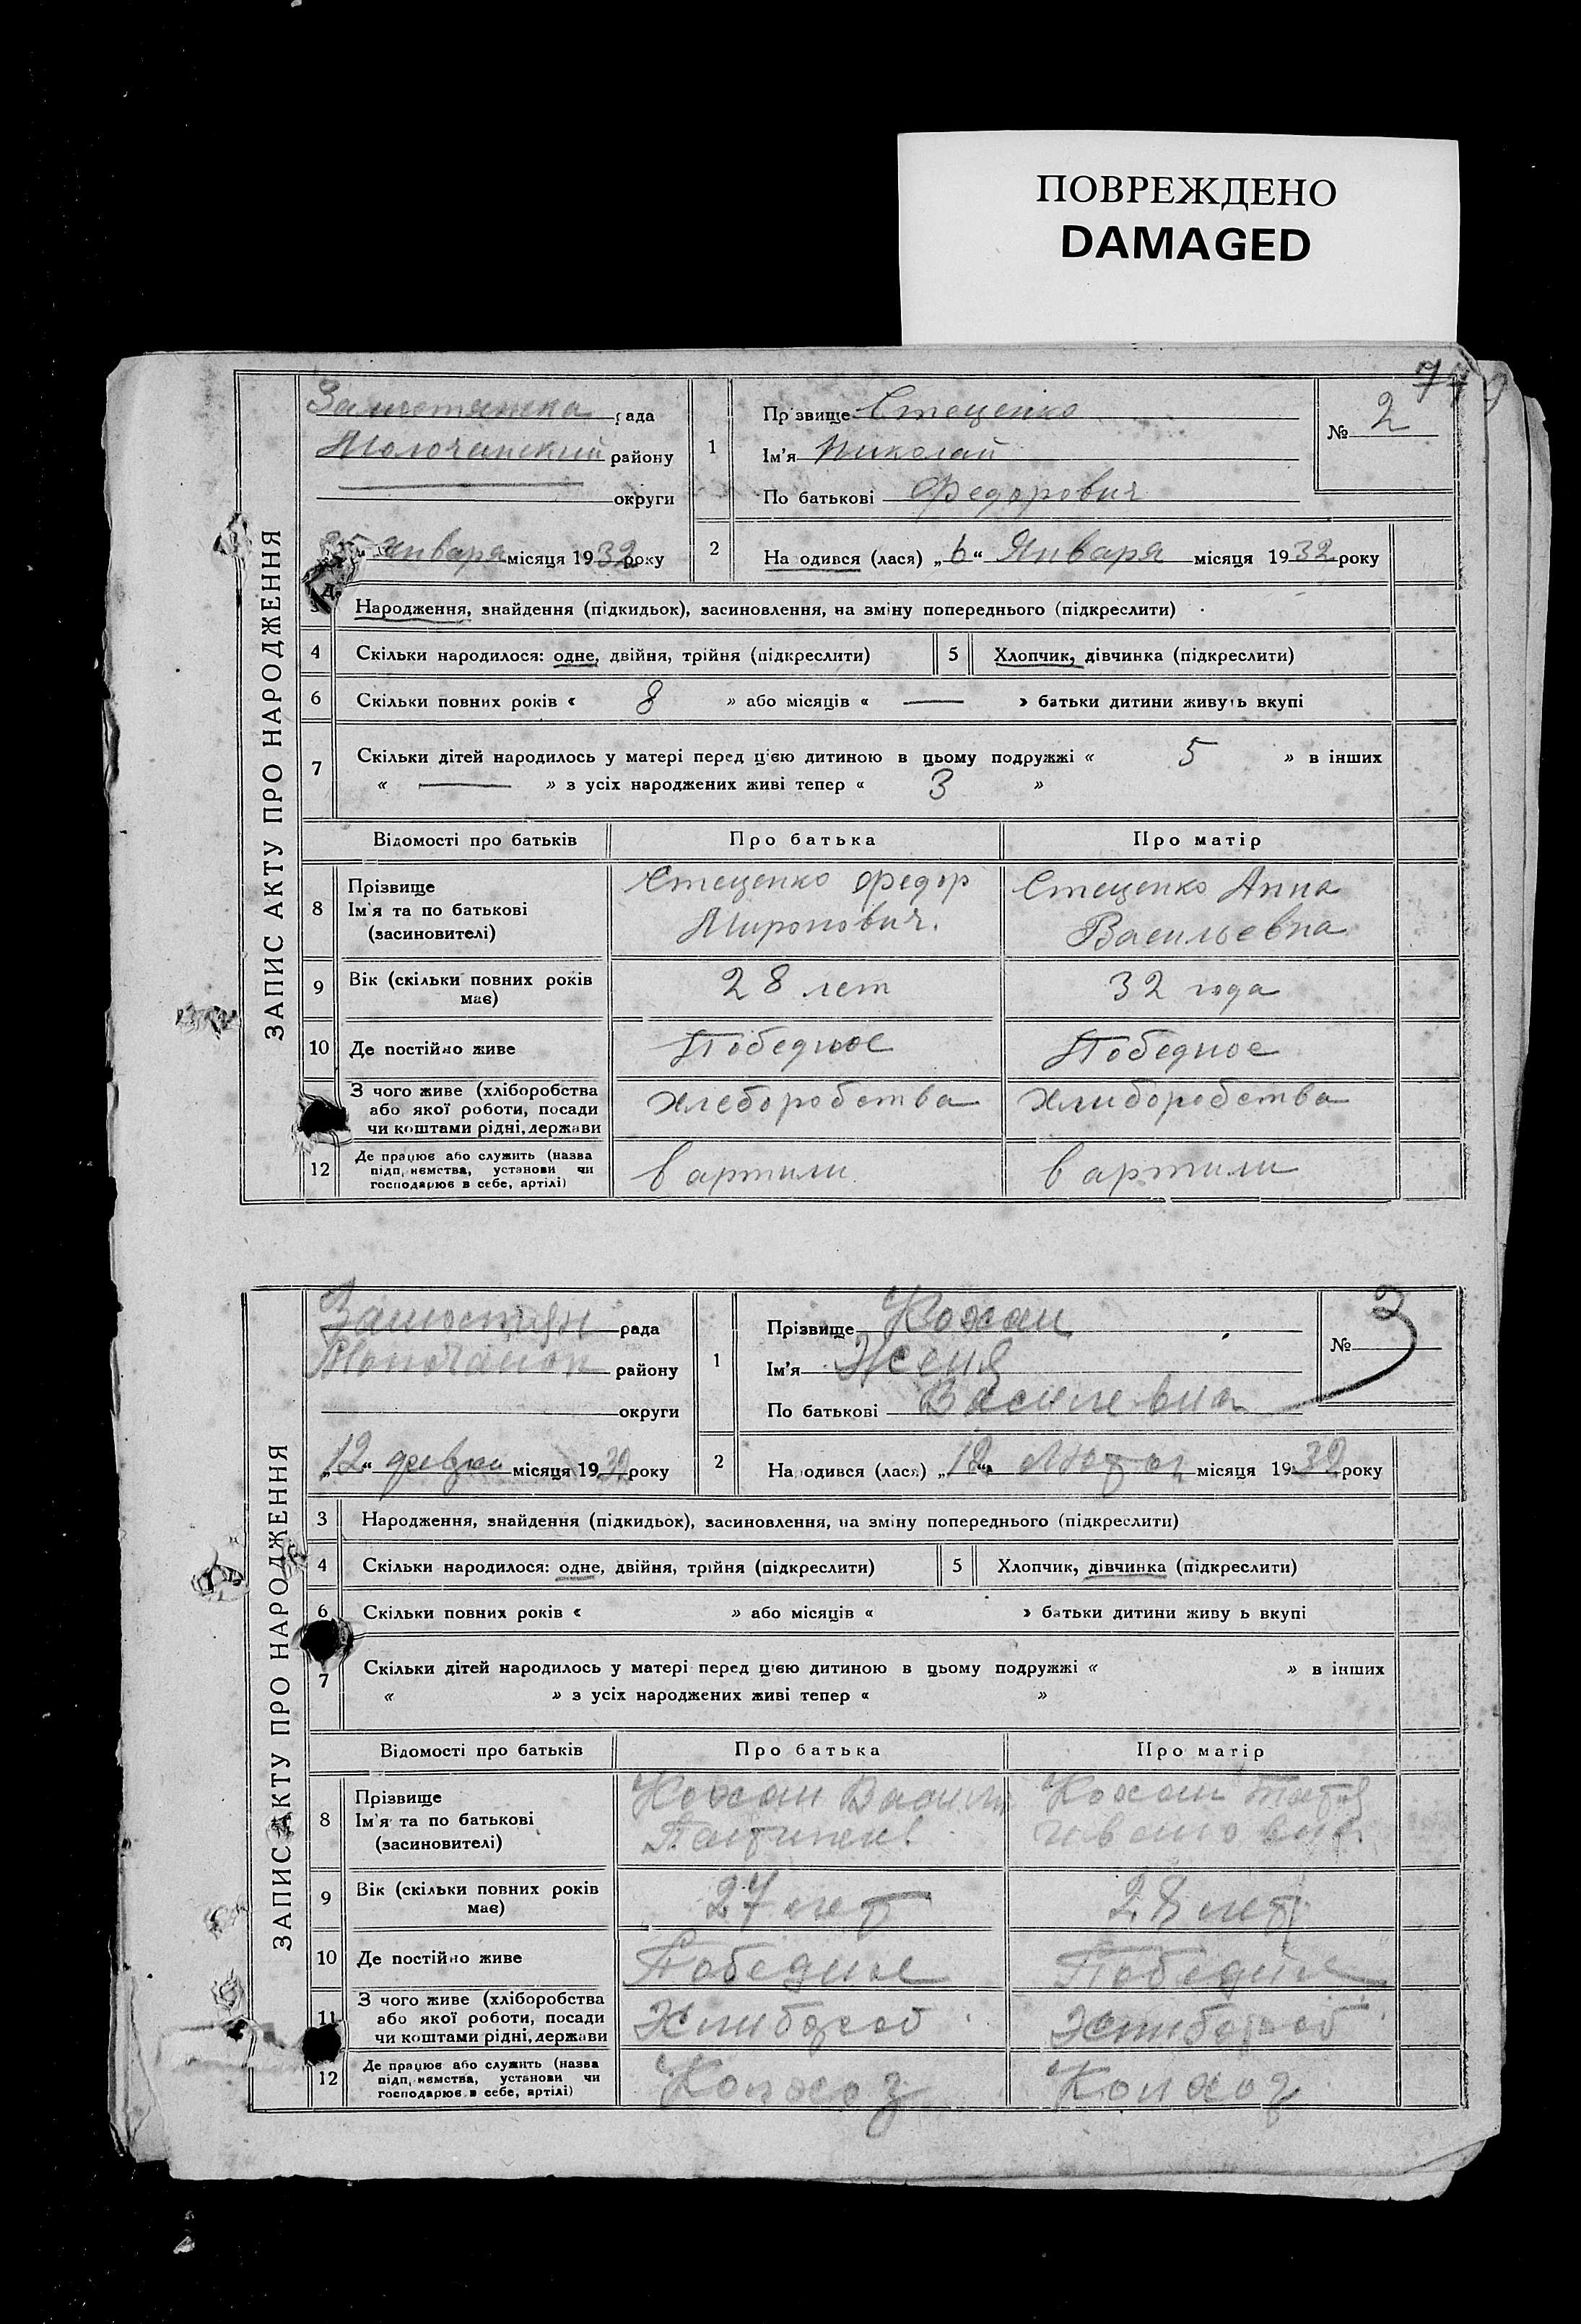 ПОВРЕЖДЕНО
DAMAGED
ЗАПИС АКТУ ПРО НАРОДЖЕННЯ
рада
Молочанский району
округи
Января місяця 1932 року
1
Прізвище Стеценко
Ім'я Николай
По батькові Федорович
№ 2
2
Народився (лася) „6“ Января місяця 1932 року
3 Народження, знайдення (підкидьок), засиновлення, на зміну попереднього (підкреслити)
4 Скільки народилося: одне, двійня, трійня (підкреслити) 5 Хлопчик, дівчинка (підкреслити)
6 Скільки повних років « 8 » або місяців « — » батьки дитини живуть вкупі
7 Скільки дітей народилось у матері перед цією дитиною в цьому подружжі « 5 » в інших
« — » з усіх народжених живі тепер « 3 »
Відомості про батьків Про батька Про матір
8 Прізвище Ім'я та по батькові (засиновителі) Стеценко Федор Миронович. Стеценко Анна Васильевна
9 Вік (скільки повних років має) 28 лет 32 года
10 Де постійно живе Победное Победное
З чого живе (хліборобства або якої роботи, посади чи коштами рідні, держави хлеборобства хлиборобства
12 Де працює або служить (назва підприємства, установи чи господарює в себе, артілі) в артили в артили
ЗАПИС АКТУ ПРО НАРОДЖЕННЯ
рада
району
округи
„12“ феврал місяця 1932 року
1
Прізвище Кохан
Ім'я Женя
По батькові Василевна
№ 3
2
Народився (лася) „12“ Лютого місяця 1932 року
3 Народження, знайдення (підкидьок), засиновлення, на зміну попереднього (підкреслити)
4 Скільки народилося: одне, двійня, трійня (підкреслити) 5 Хлопчик, дівчинка (підкреслити)
6 Скільки повних років « » або місяців « » батьки дитини живу ь вкупі
7 Скільки дітей народилось у матері перед цією дитиною в цьому подружжі « » в інших
« » з усіх народжених живі тепер « »
Відомості про батьків Про батька Про матір
8 Прізвище Ім'я та по батькові (засиновителі) Кохан Васили Кохан Ивановна
9 Вік (скільки повних років має) 27 лет 28 лет
10 Де постійно живе Победне Победне
11 З чого живе (хліборобства або якої роботи, посади чи коштами рідні, держави Хлибороб Хлибороб
12 Де працює або служить (назва підприємства, установи чи господарює в себе, артілі) Колхоз Колхоз